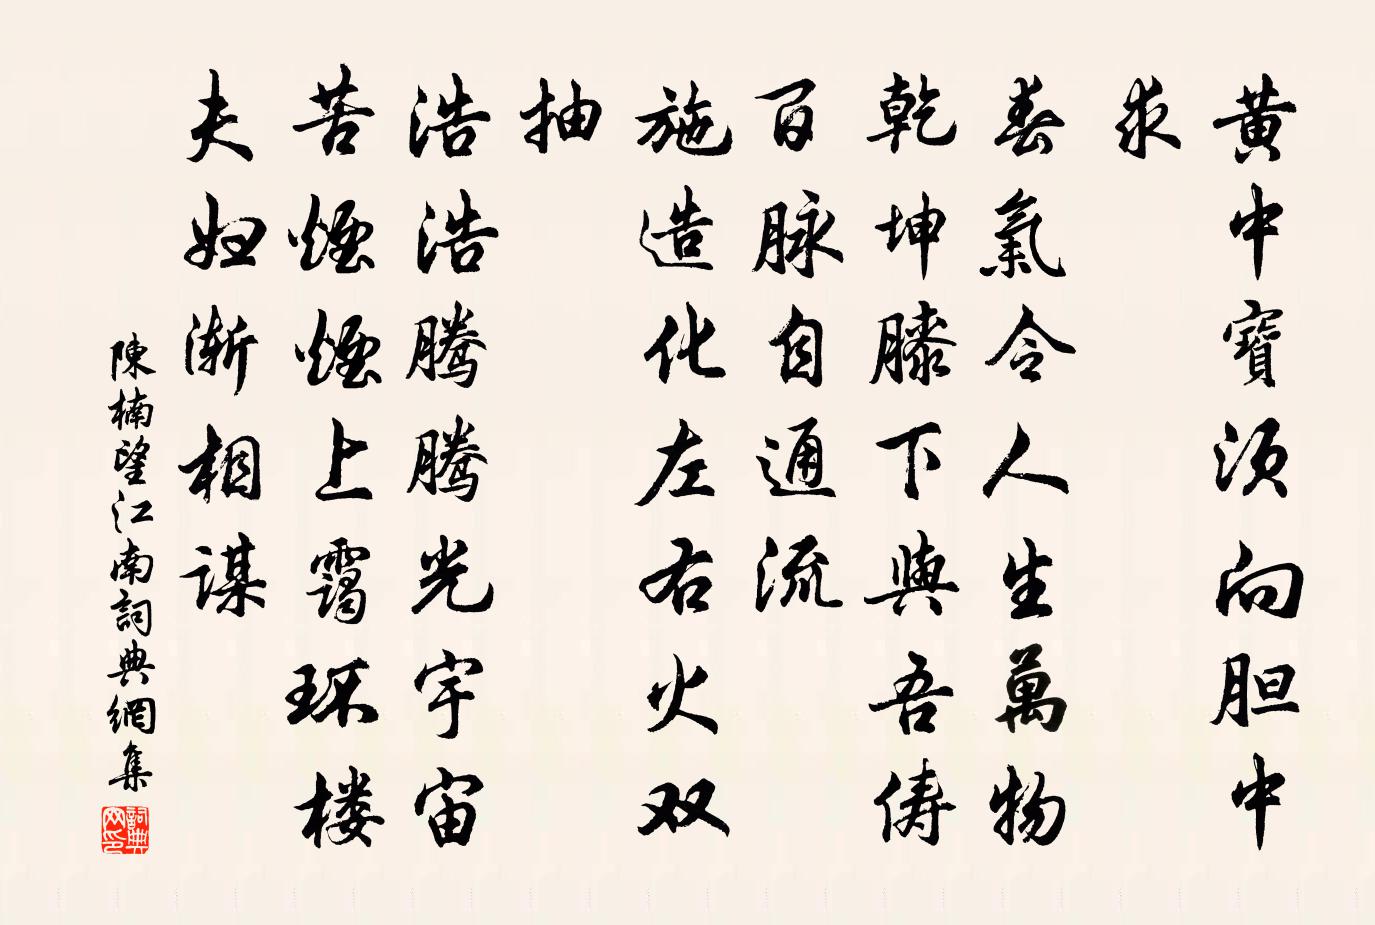 黄中寶须向胆中
求
春氣令人生萬物
乾坤膝下與吾儔
百脉自通流
施造化左右火双
抽
浩浩腾腾光宇宙
苦煙煙上靄环楼
夫妇渐相谋
陳楠望江南詞典網集
詞典网印